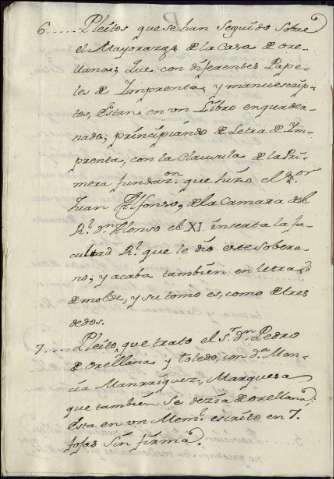 6..... Pleitos que se han seguido sobre
el Mayorazgo de la Casa de ore-
llana; que con diferentes Pape-
les de Imprenta, y manuescrip-
tos, estan en un Libro enquader-
nado; principiando de Letra de Im-
prenta, con la Clausula de la Pri-
mera fundaz.on que hizo el S.or
Juan Alfonso, de la Camara del
R.l D.n Alonso el XI inserta la fa-
cultad R.l que le dio este Sobera-
no, y acaba tambien en letra
de molde, y su tomo es, como de tres
dedos.
7..... Pleito, que trato el S.r D.n Pedro
de orellana, y Toledo, con D.a Man-
cia Manrriquez, Marquesa
que tambien se dezia de orellana
esta en un Mem.l escrito en 7.
fojas sin firma.